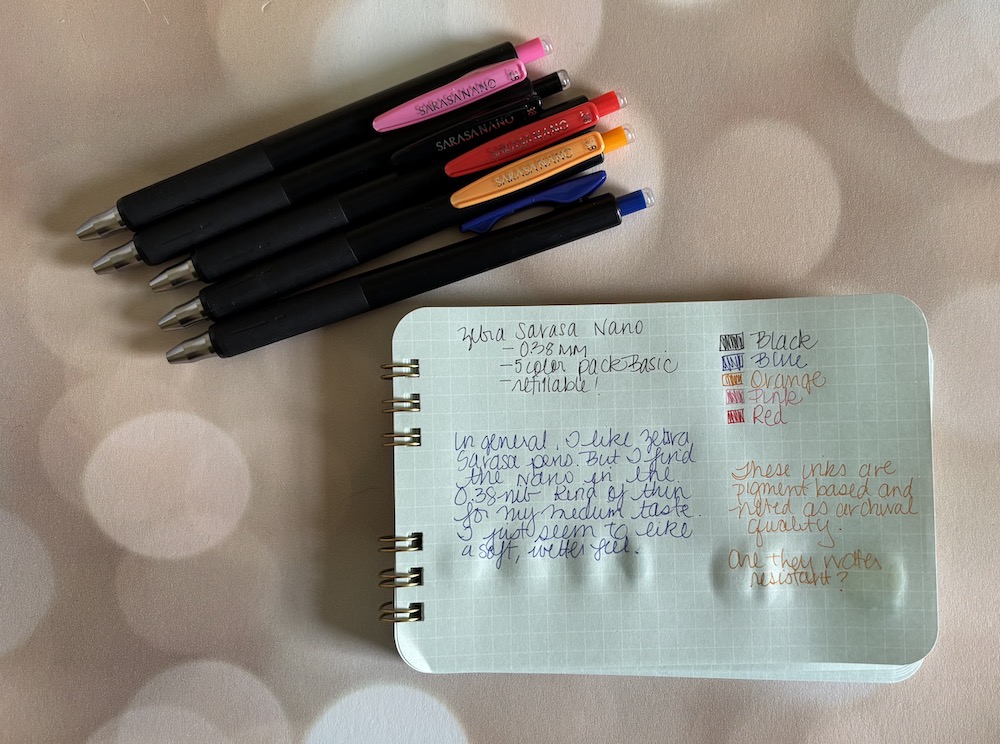 SARASA NANO
SARASA NANO
SARASA NANO
SARASA NANO
Zebra Sarasa Nano
- 0.38 MM
- 5 color pack Basic
- refillable!
Black
Blue
Orange
Pink
Red
In general, I like Zebra
Sarasa pens. But I find
the Nano in the
0.38 nib kind of thin
for my medium taste.
I just seem to like
a soft, wetter feel.
These inks are
pigment based and
noted as archival
quality.
Are they water
resistant?